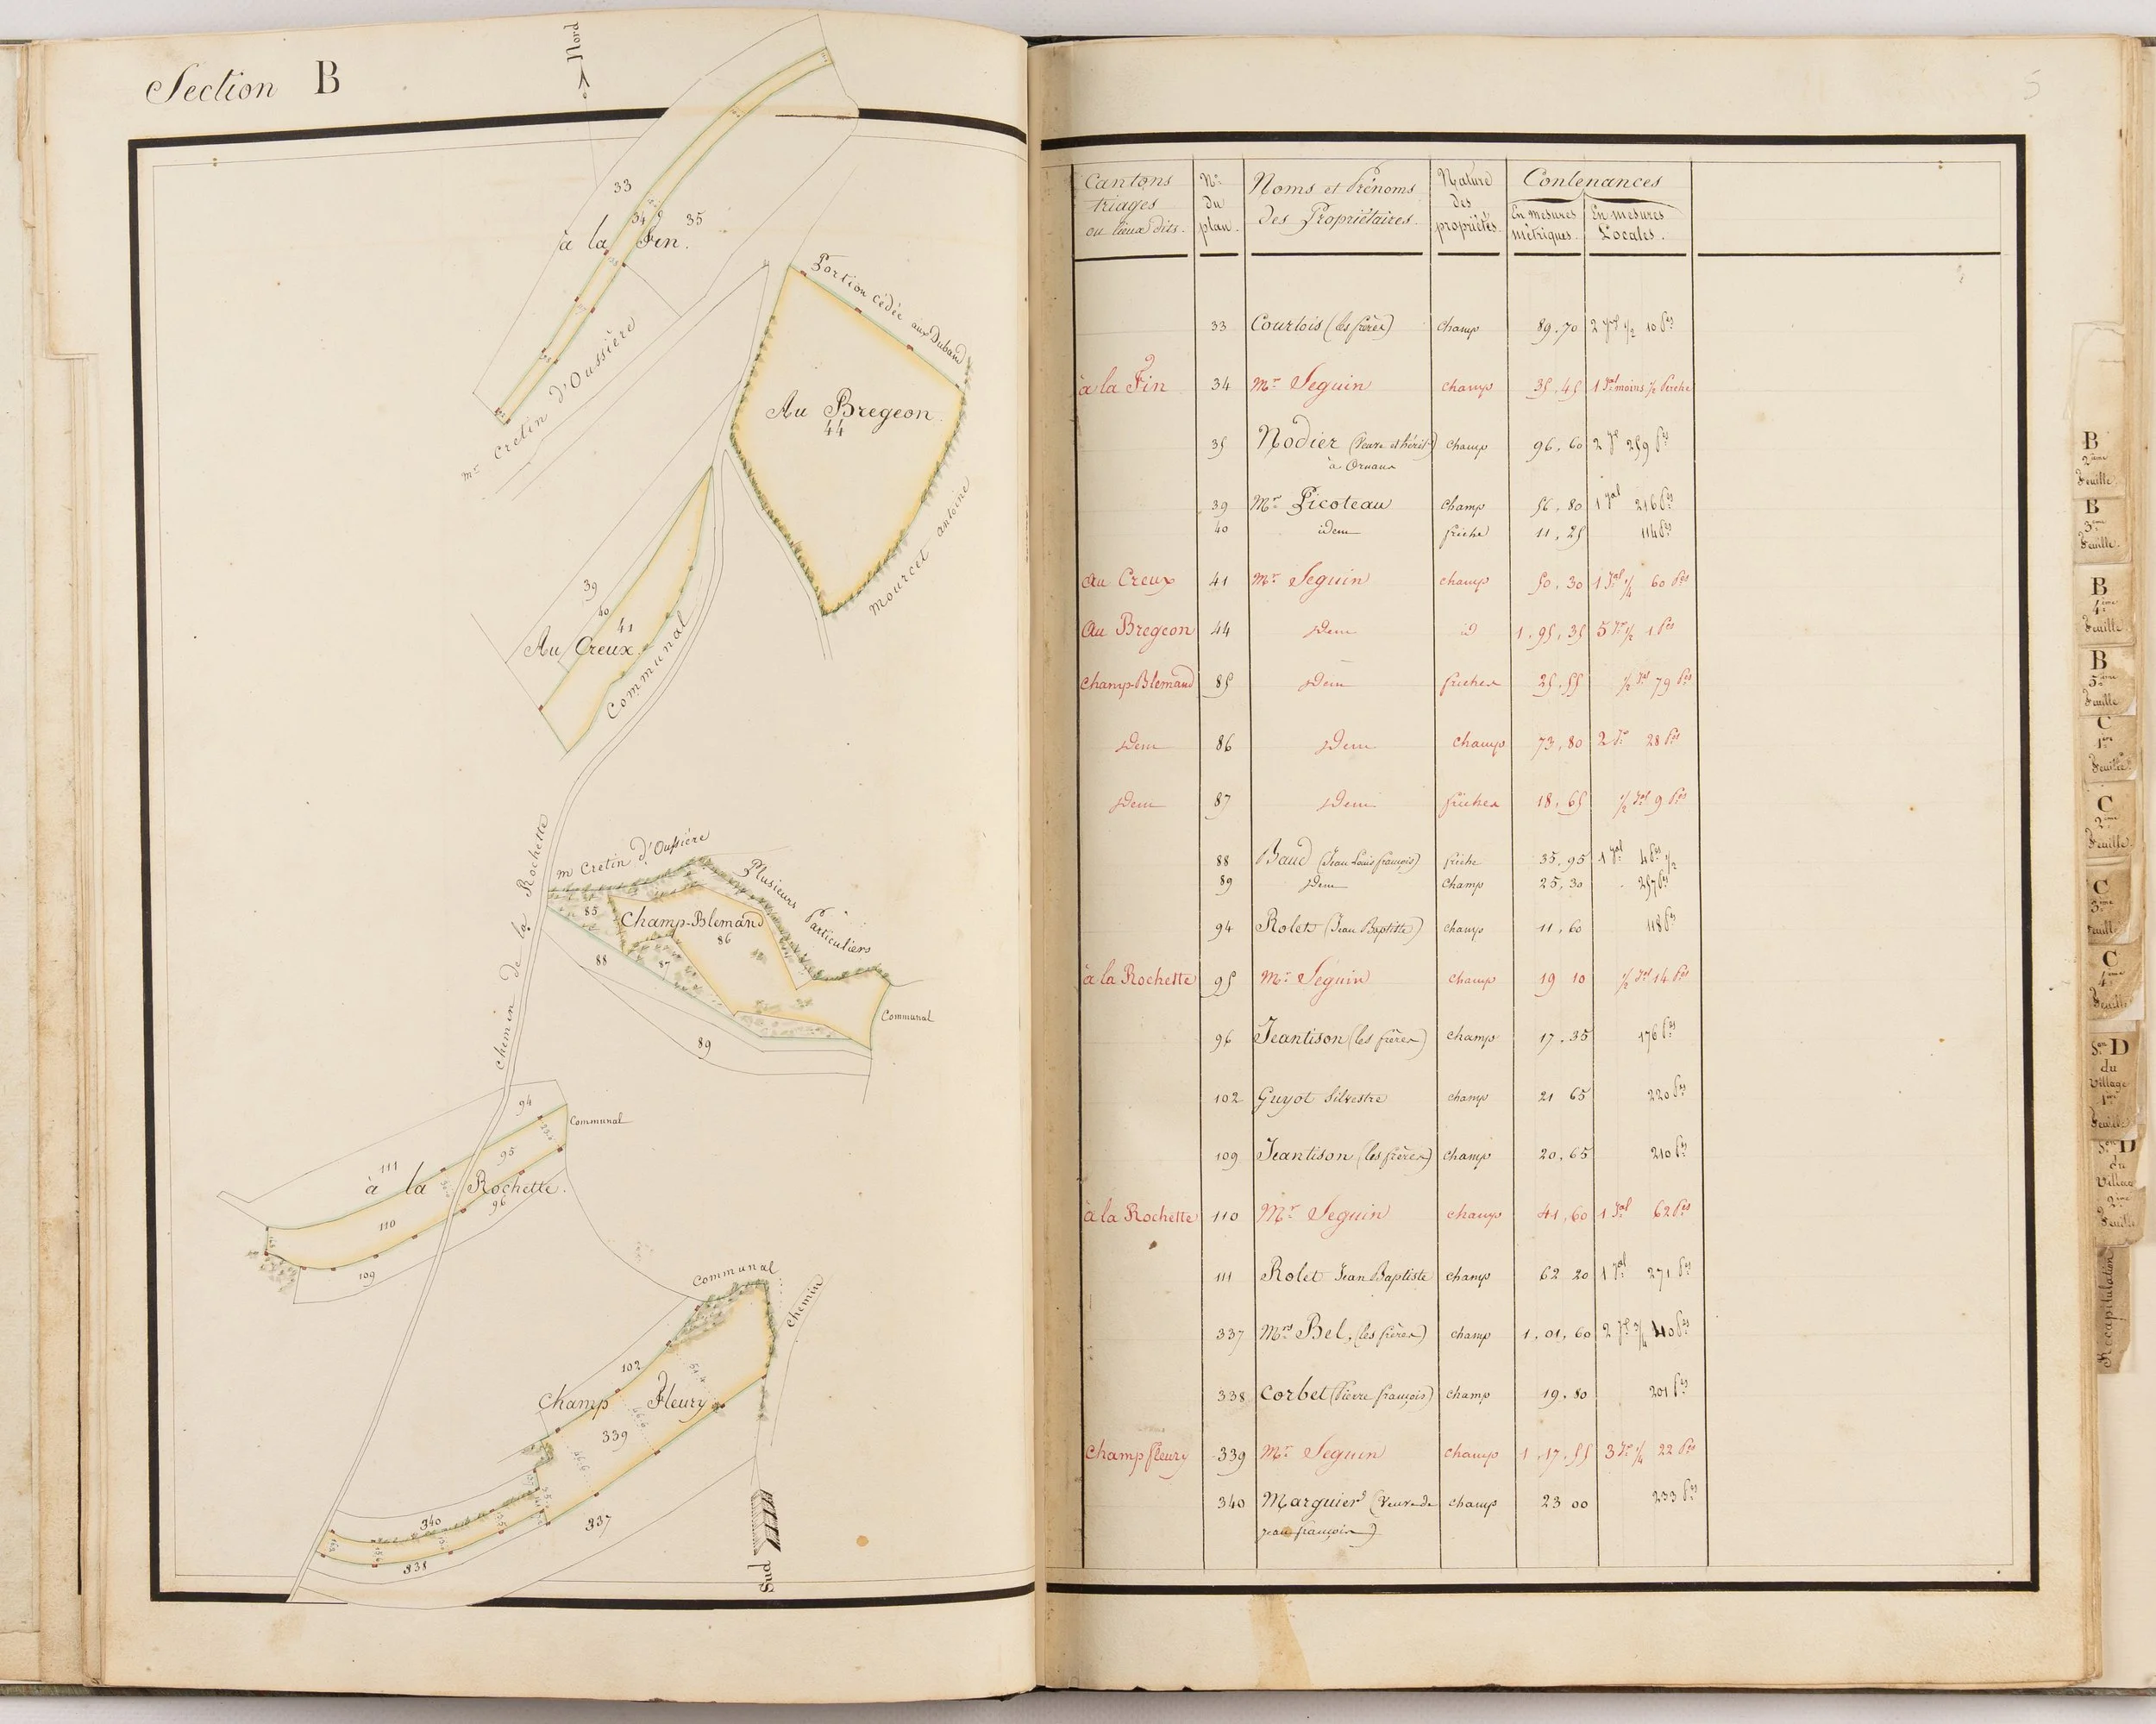 Section B
Nord
33
34
35
à la Fin.
Mr Cretin d'Oussière
Portion cédée aux Dubaud
Au Bregeon
44
Mourcet antoine
39
40
41
Au Creux.
Communal
Chemin de la Rochette
m Cretin d'Oussière
Plusieurs Particuliers
85
Champ-Blemand
86
87
88
89
Communal
94
Communal
95
111
à la Rochette.
96
110
109
Communal
Chemin
102
Champ Fleury
339
340
337
338
Sud
5
Cantons triages ou lieux dits.
Nos du plan.
Noms et Prénoms des Propriétaires.
Nature des propriétés.
Contenances
En mesures métriques.
En mesures Locales.
33 Courtois (les frères) Champ 89,70 2 Jal 1/2 10 Pes
à la Fin 34 Mr Seguin champ 35,45 1 Jal moins 1/2 Perche
35 Nodier (Veuve et hérit.) Champ 96,60 2 Jx 259 Pes
à Ornans
39 Mr Picoteau Champ 56,80 1 Jal 216 Pes
40 idem friche 11,25 114 Pes
Au Creux 41 Mr Seguin champ 50,30 1 Jal 1/4 60 Pes
Au Bregeon 44 Idem id 1,95,35 5 Jx 1/2 1 Pes
Champ-Blemand 85 Idem friches 25,55 1/2 Jal 79 Pes
Idem 86 Idem Champ 73,80 2 Jx 28 Pes
Idem 87 Idem friches 18,65 1/2 Jal 9 Pes
88 Baud (Jean Louis françois) friche 35,95 1 Jal 4 Pes 1/2
89 Idem Champ 25,30 257 Pes
94 Rolet (Jean Baptiste) champ 11,60 118 Pes
à la Rochette 95 Mr Seguin Champ 19 10 1/2 Jal 14 Pes
96 Jeantison (les frères) Champ 17,35 176 Pes
102 Guyot Silvestre champ 21 65 220 Pes
109 Jeantison (les frères) champ 20,65 210 Pes
à la Rochette 110 Mr Seguin champ 41,60 1 Jal 62 Pes
111 Rolet Jean Baptiste champ 62 20 1 Jal 271 Pes
337 Mrs Bel, (les frères) champ 1,01,60 2 Jx 3/4 40 Pes
338 Corbet (Pierre françois) champ 19,80 201 Pes
Champ fleury 339 Mr Seguin Champ 1,17,55 3 Jx 1/4 22 Pes
340 Marguier (Veuve de champ 23 00 233 Pes
jean françois)
B 2ème Feuille.
B 3ème Feuille.
B 4ème Feuille.
B 5ème Feuille
C 1ère Feuille.
C 2ème Feuille.
C 3ème Feuille
C 4ème Feuille
Son D du Village 1ère Feuille
Son D du Village 2ème Feuille
Récapitulation